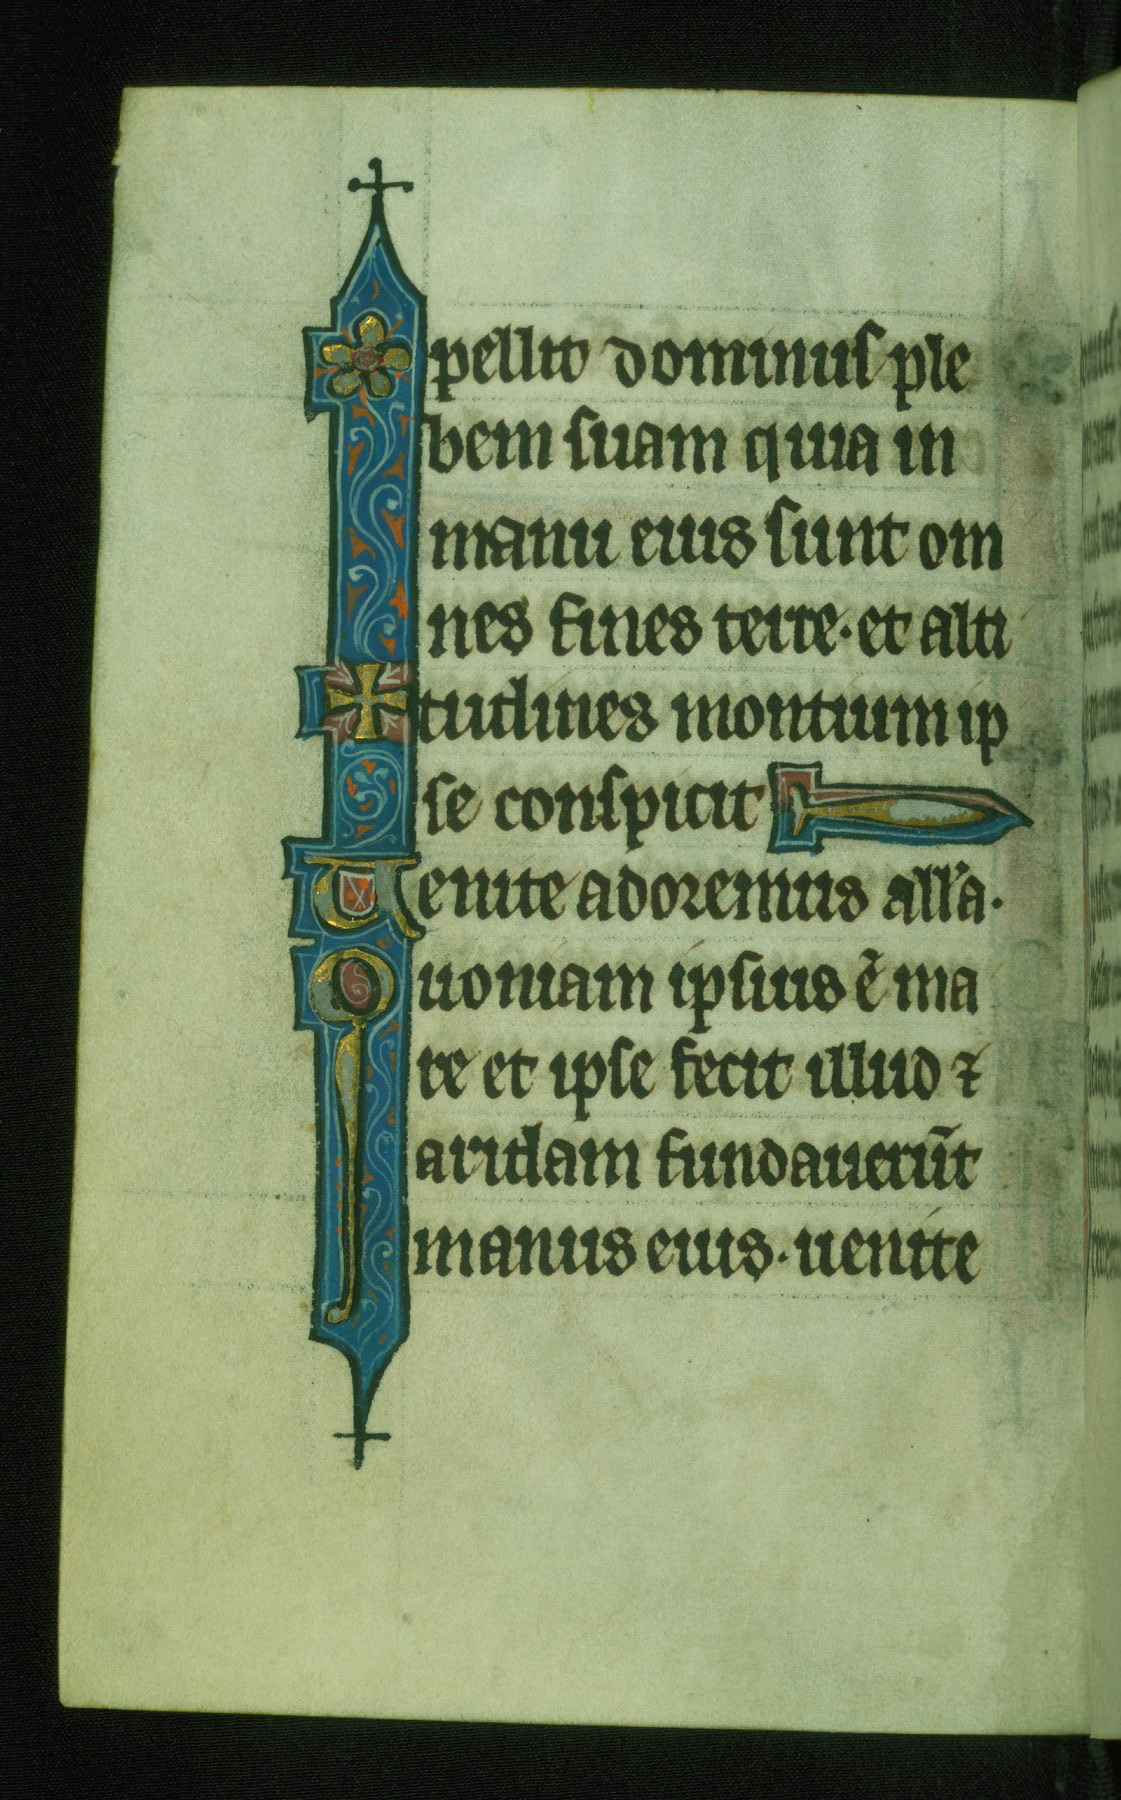 pellit dominus ple
bem suam quia in
manu eius sunt om
nes fines terre· et alti
tudines montium ip
se conspicit
Uenite adoremus all'a·
Quoniam ipsius ē ma
re et ipse fecit illud ⁊
aridam fundauerūt
manus eius· uenite